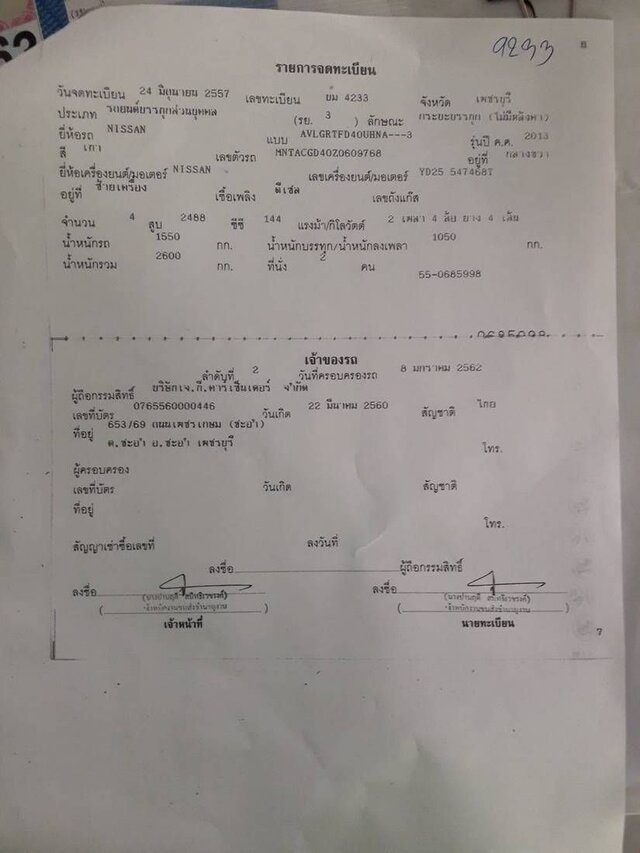 9233
8
รายการจดทะเบียน
วันจดทะเบียน 24 มิถุนายน 2557 เลขทะเบียน ยม 4233 จังหวัด เพชรบุรี
ประเภท รถยนต์บรรทุกส่วนบุคคล (รย. 3 ) ลักษณะ กระบะบรรทุก (ไม่มีหลังคา)
ยี่ห้อรถ NISSAN แบบ AVLGRTFD40UHNA---3 รุ่นปี ค.ศ. 2013
สี เทา เลขตัวรถ MNTACGD40Z0609768 อยู่ที่ กลางขวา
ยี่ห้อเครื่องยนต์/มอเตอร์ NISSAN เลขเครื่องยนต์/มอเตอร์ YD25 547468T
อยู่ที่ ซ้ายเครื่อง เชื้อเพลิง ดีเซล เลขถังแก๊ส
จำนวน 4 สูบ 2488 ซีซี 144 แรงม้า/กิโลวัตต์ 2 เพลา 4 ล้อ ยาง 4 เส้น
น้ำหนักรถ 1550 กก. น้ำหนักบรรทุก/น้ำหนักลงเพลา 1050 กก.
น้ำหนักรวม 2600 กก. ที่นั่ง 2 คน
55-0685998
เจ้าของรถ
ลำดับที่ 2 วันที่ครอบครองรถ 8 มกราคม 2562
ผู้ถือกรรมสิทธิ์ บริษัทเจ.กี.คาร์เซ็นเตอร์ จำกัด
เลขที่บัตร 0765560000446 วันเกิด 22 มีนาคม 2560 สัญชาติ ไทย
ที่อยู่ 653/69 ถนนเพชรเกษม (ชะอำ)
ต.ชะอำ อ.ชะอำ เพชรบุรี
โทร.
ผู้ครอบครอง
เลขที่บัตร วันเกิด สัญชาติ
ที่อยู่
โทร.
สัญญาเช่าซื้อเลขที่ ลงวันที่
ลงชื่อ ผู้ถือกรรมสิทธิ์
ลงชื่อ ลงชื่อ
เจ้าพนักงานขนส่งชำนาญงาน เจ้าพนักงานขนส่งชำนาญงาน
เจ้าหน้าที่ นายทะเบียน
7